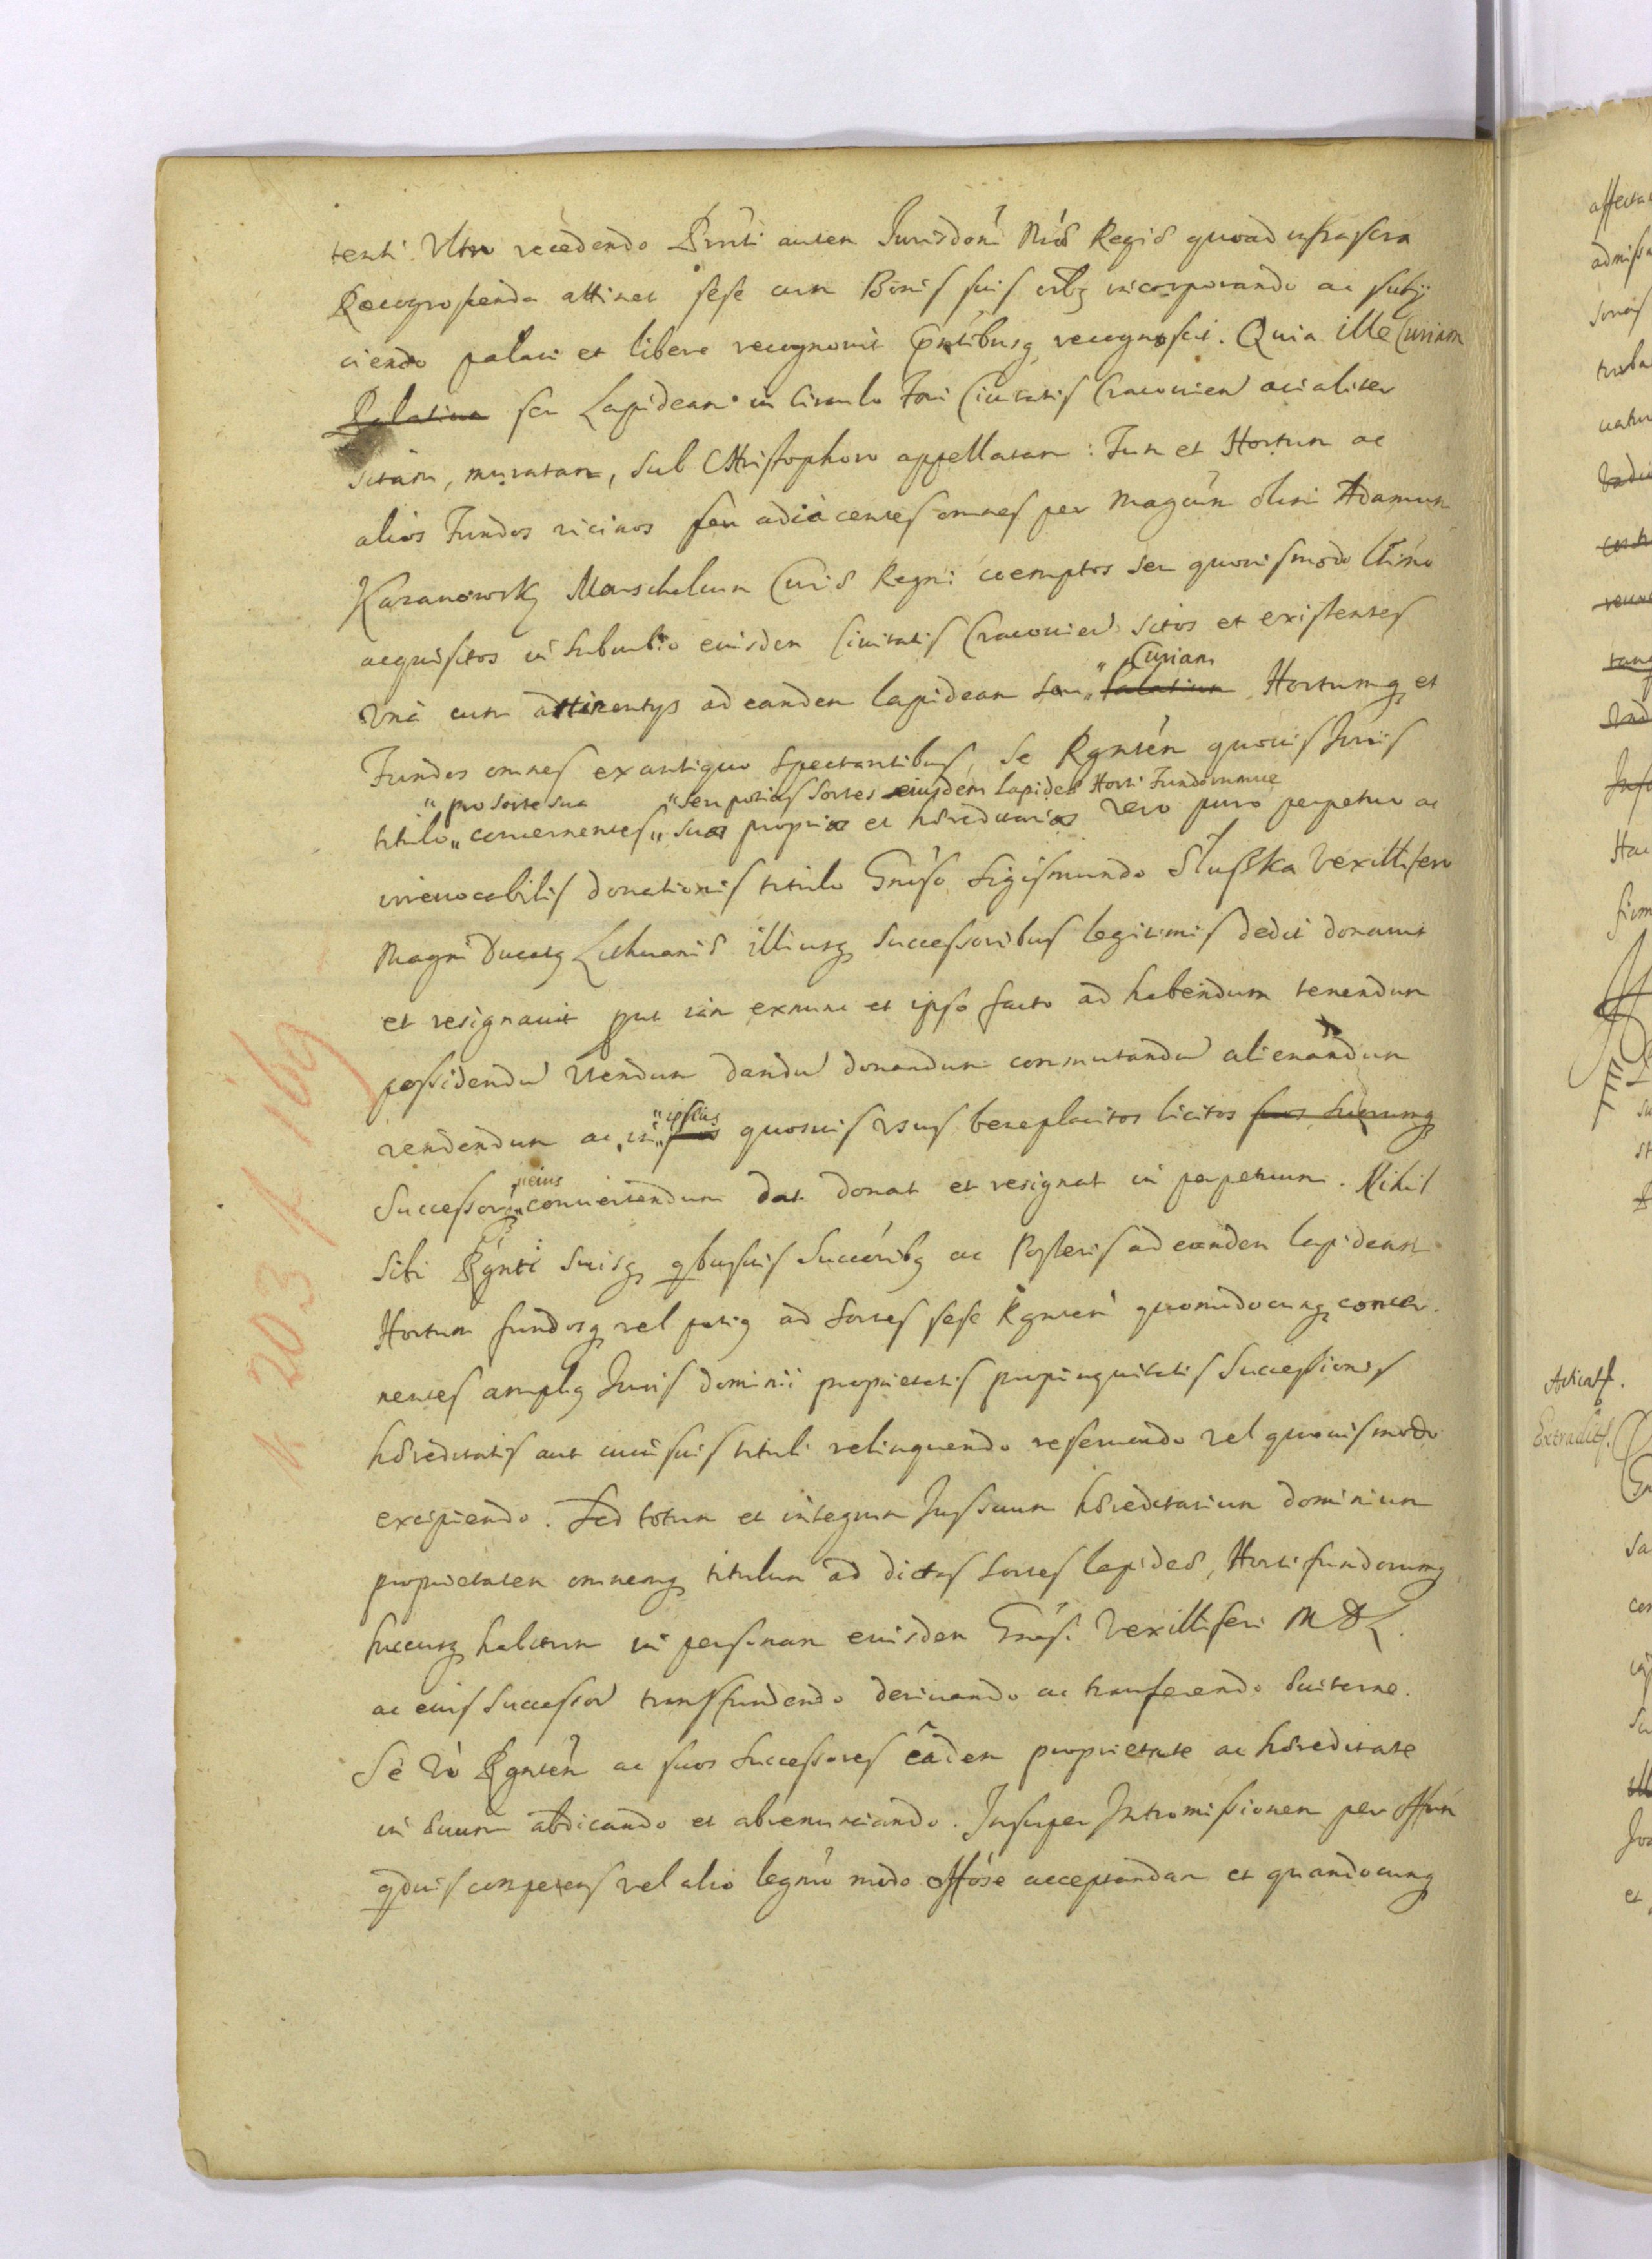 tenti Vltro recedendo Prnti autem Jurisdoni Nrae Regiae quoad infrascra
Recognoscenda attinet sese cum Bonis suis oibq incorporando ac subij
ciendo palam et libere recognouit Pntibusq recognoscit. Quia ille Curiam
Palatium seu Lapideam in Circulo Fori Ciuitatis Cracouien acialiter
sitam, muratam, sub Christophoro appellatam: Tum et Hortum ac
alios Fundos vicinos seu adiacentes omnes per Magcum olim Adamum
Kazanowsky Marschalcum Curiae Regni coemptos seu quouismodo ltimo
acquisitos in suburbio eiusdem Ciuitatis Cracouien sitos et existentes
Vna cum attinentys ad eandem lapideam seu " Palatium Hortumq et
" Curiam
Fundos omnes ex antiquo spectantibus, se Rgnten quouis Juris
" pro sorte sua " seu potius sortes eiusdem Lapideae Horti Fundorumue
titulo " concernentes " suas proprias et haereditarias vero puro perpetuo ac
irreuocabilis donationis titulo Gnoso Sigismundo Słuszka Vexillifero
Magni Ducatq Lithuaniae illiusq successoribus legitimis dedit donauit
et resignauit put iam exnunc et ipso facto ad habendum tenendum
possidendu Vtendum dandu donandum commutandu alienandum
vendendum ac in " suos quosuis vsus beneplacitos licitos suos suorumq
" ipsius
Successorum " conuertendum dat donat et resignat in perpetuum. Nihil
" eius
Sibi Rgnti suisq qbusuis Succoribq ac Posteris ad eandem lapideam
Hortum fundosq vel potiq ad sortes sese Rgnten quomodocunq concer
nentes ampliq Juris dominii proprietatis propinquitatis successionis
haereditatis aut cuiusuis tituli relinquendo reseruando vel quouismodo
excipiendo. Sed totum et integrum Jus suum haereditarium dominium
proprietatem omnemq titulum ad dictas sortes lapideae, Horti fundorumq
hucusq habitum in personam eiusdem Gnosi Vexilliferi M D L.
ac eius Successor transfundendo deriuando ac transferendo Suiterne.
Se Vo Rgnten ac suos Successores eadem proprietate ac haereditate
in aeuum abdicando et abrenunciando. Insuper Intromissionem per Offum
qduis competens vel alio legmo modo Offose acceptandam et quandocunq
1 203 1 169